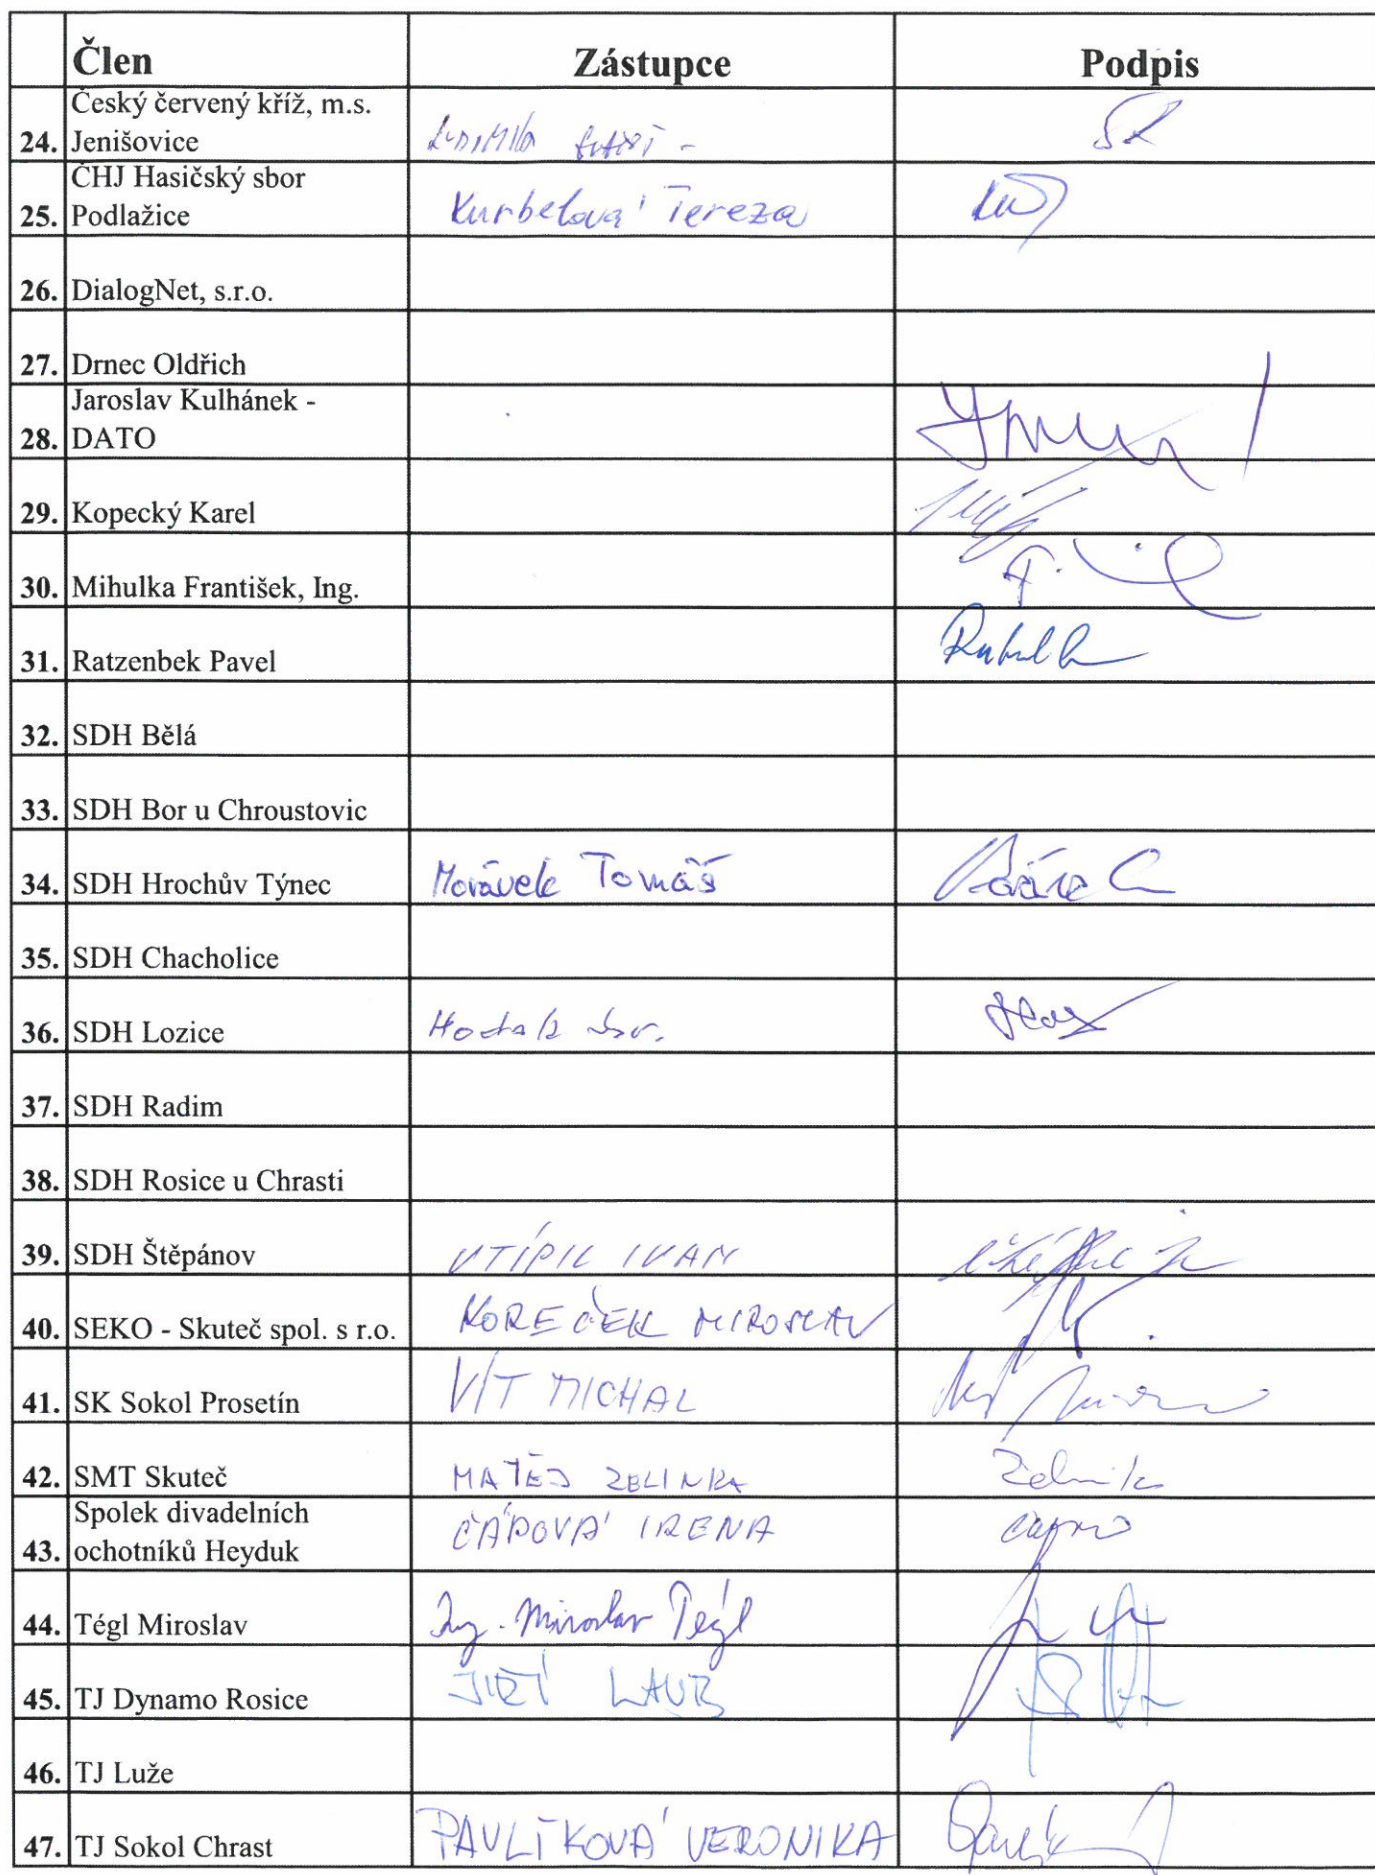 Člen Zástupce Podpis
Český červený kříž, m.s.
24. Jenišovice
ČHJ Hasičský sbor
25. Podlažice Kurbelová Tereza
26. DialogNet, s.r.o.
27. Drnec Oldřich
Jaroslav Kulhánek -
28. DATO
29. Kopecký Karel
30. Mihulka František, Ing.
31. Ratzenbek Pavel
32. SDH Bělá
33. SDH Bor u Chroustovic
34. SDH Hrochův Týnec Morávek Tomáš
35. SDH Chacholice
36. SDH Lozice
37. SDH Radim
38. SDH Rosice u Chrasti
39. SDH Štěpánov VTÍPIL IVAN
40. SEKO - Skuteč spol. s r.o. KOREČEK MIROSLAV
41. SK Sokol Prosetín VÍT MICHAL
42. SMT Skuteč MATĚJ ZELINKA
Spolek divadelních
43. ochotníků Heyduk ČÁPOVÁ IRENA
44. Tégl Miroslav Ing. Miroslav Tégl
45. TJ Dynamo Rosice JIŘÍ LAUB
46. TJ Luže
47. TJ Sokol Chrast PAVLÍKOVÁ VERONIKA